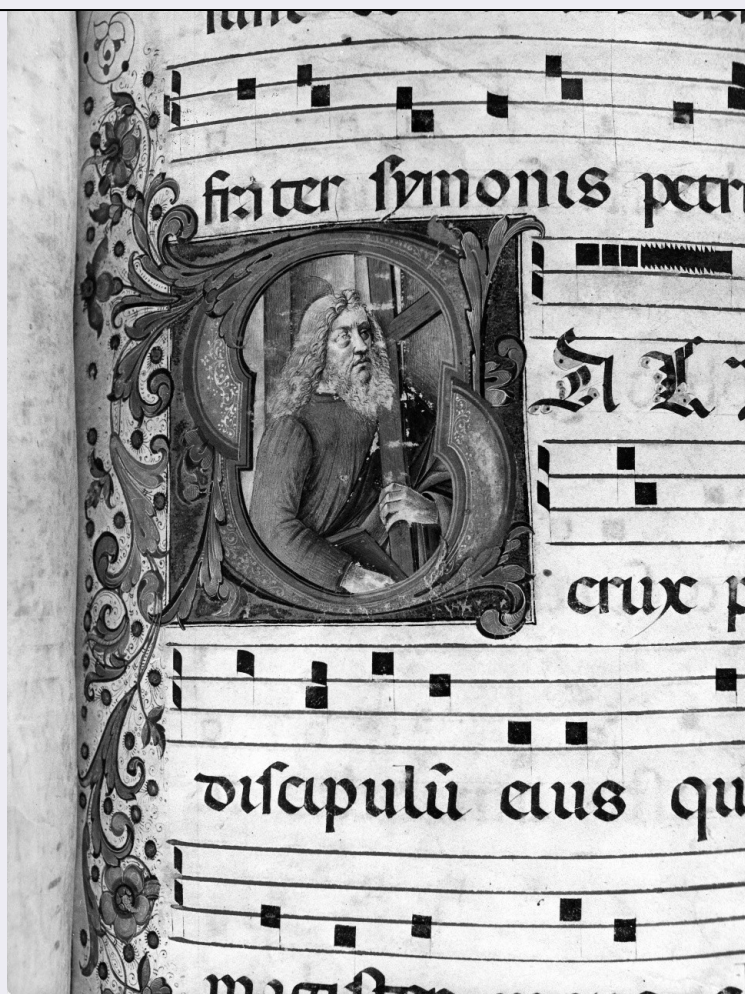 frater symonis petri
SAL
crux p
discipulū eius qu